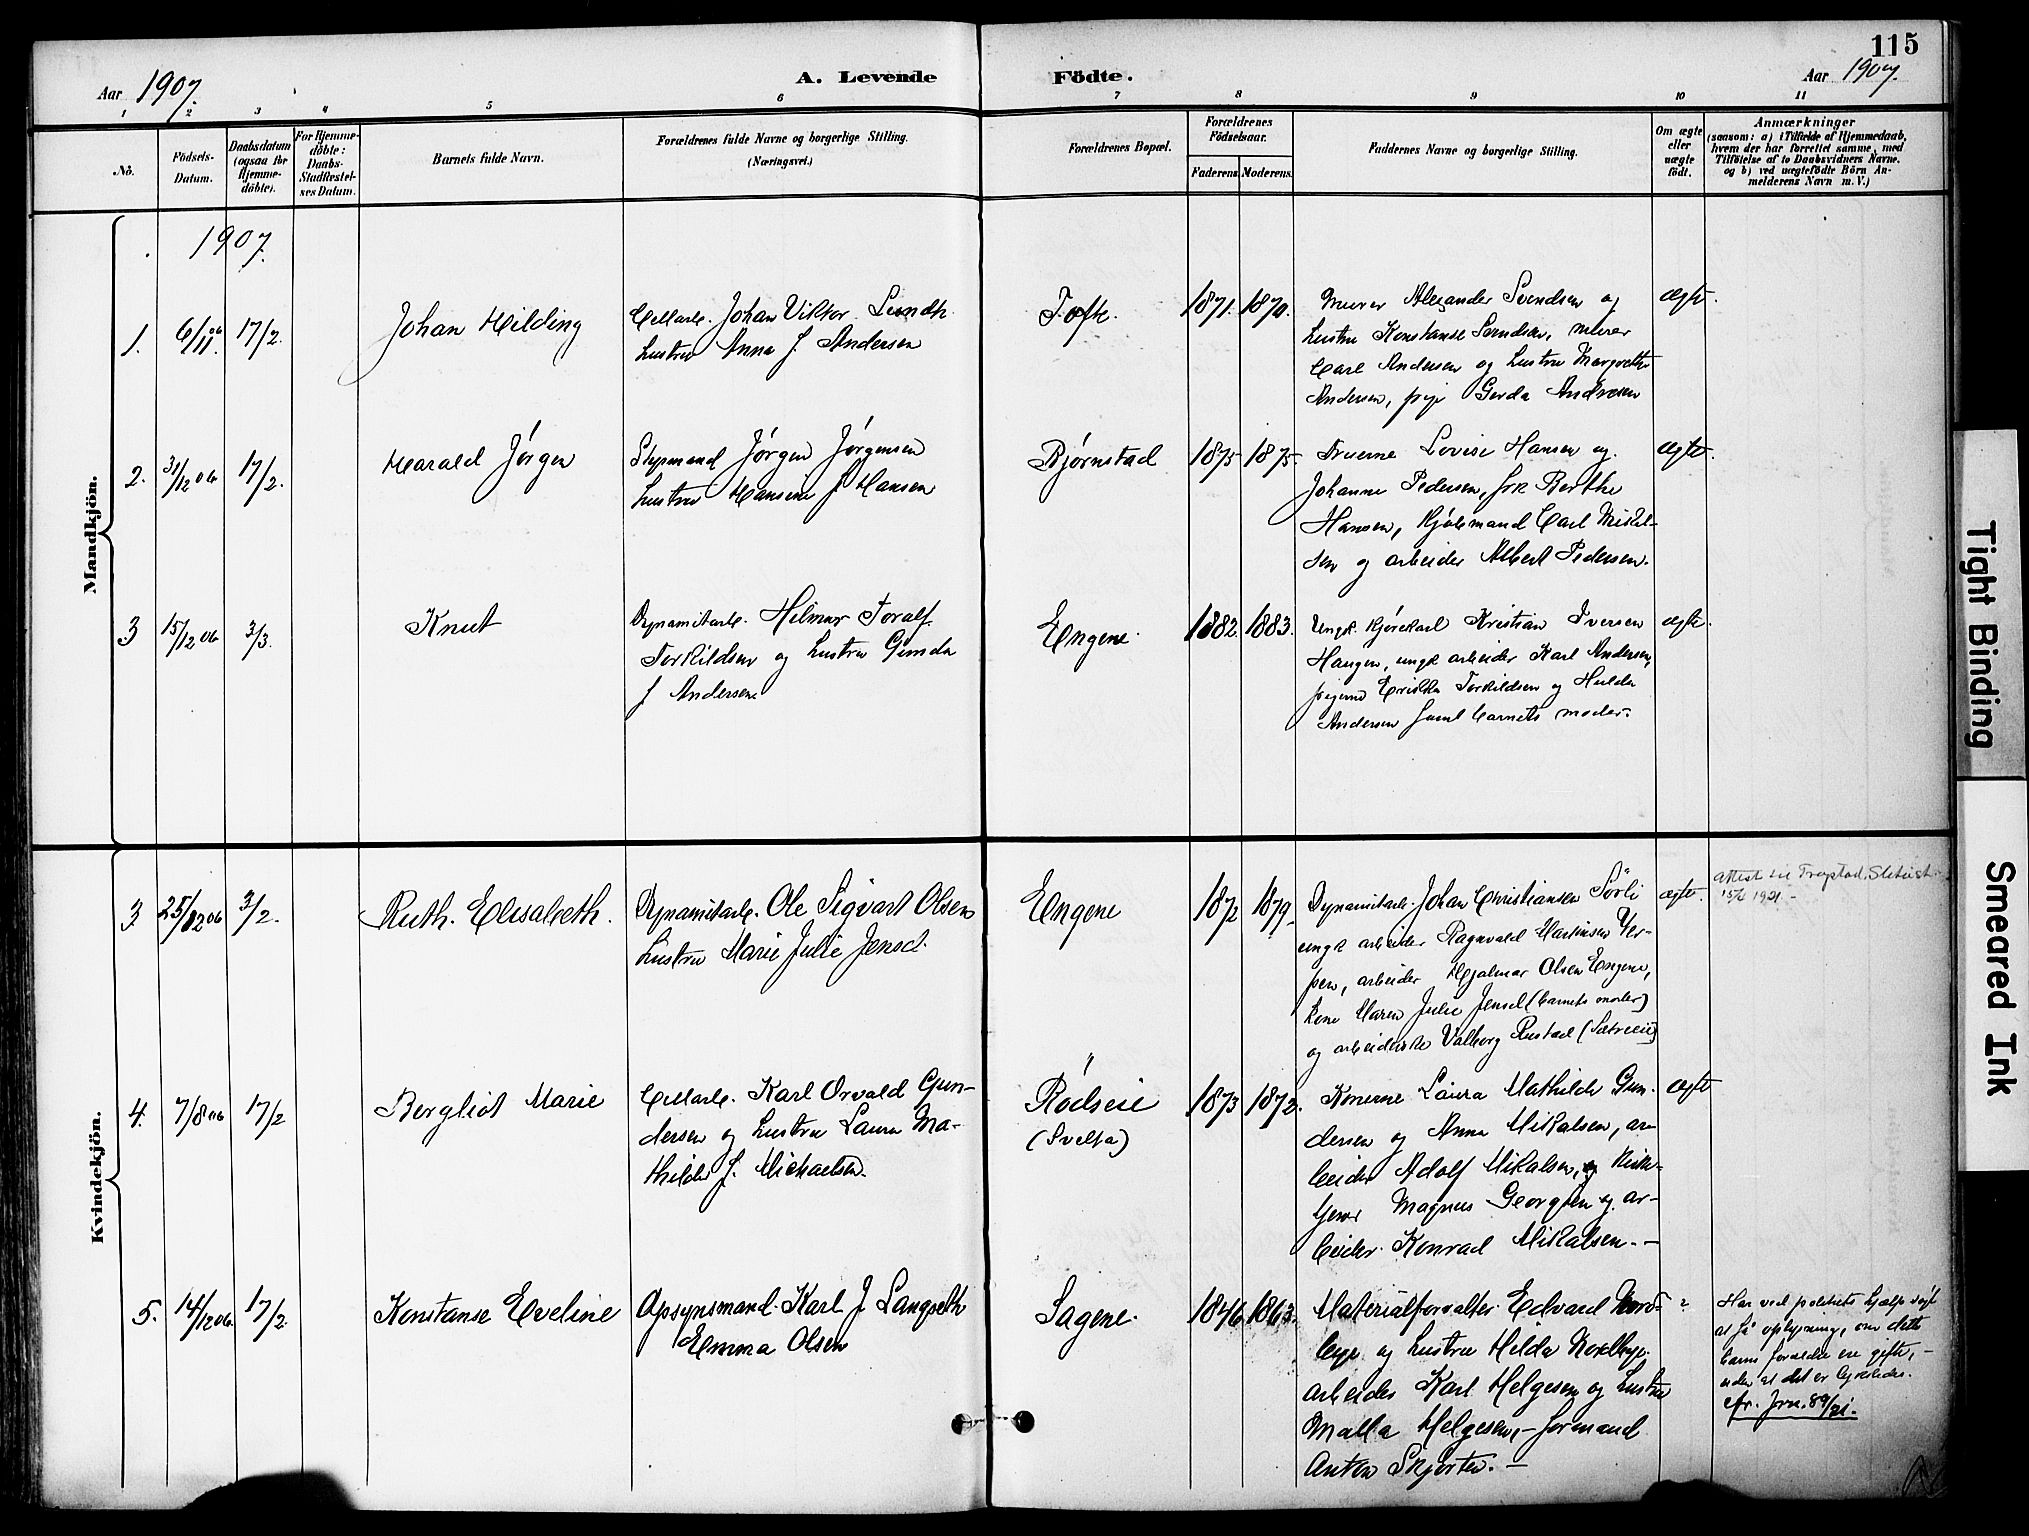 115
Aar 1907.
A. Levende
Födte.
Aar 1907.
1 2 3 4 5 6 7 8 9 10 11
No.
Födsels-
Datum.
Daabsdatum
(ogsaa for
Hjemme-
döbte).
For Hjemme-
döbte:
Daabs-
Stadfæstel-
ses Datum.
Barnets fulde Navn.
Forældrenes fulde Navne og borgerlige Stilling.
(Næringsvei.)
Forældrenes Bopæl.
Forældrenes
Födselsaar.
Faderens
Moderens.
Faddernes Navne og borgerlige Stilling.
Om ægte
eller
uægte
födt.
Anmærkninger
(saasom: a) i Tilfælde af Hjemmedaab,
hvem der har forrettet samme, med
Tilföielse af to Daabsvidners Navne.
og b) ved uægtefödte Börn An-
melderens Navn m. V.)
Mandkjön.
1907.
1. 6/11 06 17/2. Johan Hilding
Cellarb. Johan Viktor Lundh
Hustru Anna f. Andersen
Tofte. 1871. 1870.
Murer Alexander Svendsen og
Hustru Konstanse Svendsen, murer
Carl Andersen og Hustru Margrethe
Andersen, pige Gerda Andresen
ægte.
2. 31/12 06 17/2. Harald Jørgen
Styrmand Jørgen Jørgensen
Hustru Hansine f. Hansen
Bjørnstad 1875 1875.
Fruerne Lovise Hansen og
Johanne Pedersen, frk Berthe
Hansen, Kjøbmand Carl Mikkel-
sen og arbeider Albert Pedersen.
ægte.
3 15/12 06 3/3. Knut
Dynamitarb. Hilmar Toralf
Torkildsen og Hustru Gunda
f Andersen
Engene. 1882. 1883.
Ungk. kjørekarl Kristian Iversen
Haugen, ungk arbeider Karl Andersen,
pigerne Erikka Torkildsen og Hulda
Andersen samt barnets moder.
ægte.
Kvindekjön.
3 25/12 06 3/2. Ruth. Elisabeth.
Dynamitarb. Ole Sigvart Olsen
Hustru Marie Julie Jensd.
Engene 1872 1879.
Dynamitarb. Johan Christiansen Sörli
ungk arbeider Ragnvald Martinsen Ver-
pen, arbeider Hjalmar Olsen Engene,
Kone Maren Julie Jensd (barnets moder)
og arbeiderske Valborg Rustad (Sætreeie)
ægte.
Attest til Trøgstad,
15/6 1921 -
4. 7/8 06 17/2 Bergliot Marie
Cellarb. Karl Orvald Gun-
dersen og Hustru Laura Ma-
thilde f. Michaelsen.
"
Rødseie
(Svelta)
1873 1872.
Konerne Laura Mathilde Gun-
dersen og Anna Mikalsen, ar-
beider Adolf Mikalsen, og
Magnus Georgsen og ar-
beider Konrad Mikalsen. -
ægte
5. 14/12 06. 17/2. Konstanse Eveline
Opsynsmand Karl J. Langseth
Emma Olsen
Sagene. 1846 1863.
Materialforvalter Edvard Nord-
bye og Hustru Hilda Nordbye.
arbeider Karl Helgesen og Hustru
Malla Helgesen, - formand
Anton Skjorten. -
?
Har ved politiets hjælp søgt
at få oplysning, om dette
barns forældre ere gifte, -
uden at det er lykkedes.
cfr. Jrn. 89/21.
Tight Binding
Smeared Ink